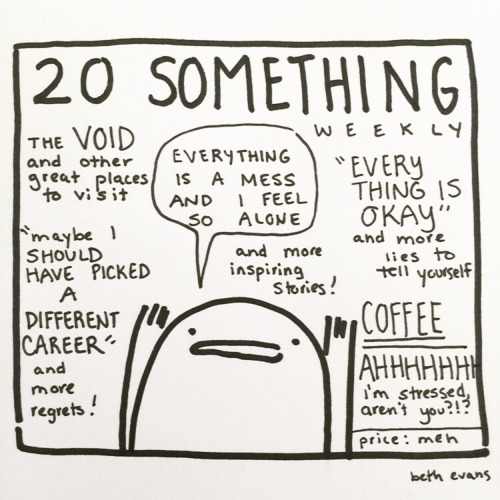 20 SOMETHING
WEEKLY
THE VOID
and other
great places
to visit
EVERYTHING
IS A MESS
AND I FEEL
SO ALONE
and more
inspiring
stories!
"EVERY
THING IS
OKAY"
and more
lies to
tell yourself
"maybe I
SHOULD
HAVE PICKED
A
DIFFERENT
CAREER"
and
more
regrets!
COFFEE
AHHHHHHH
i'm stressed,
aren't you?!?
price: meh
beth evans